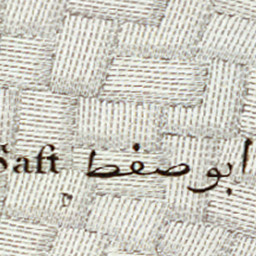 Saft ابوصفط